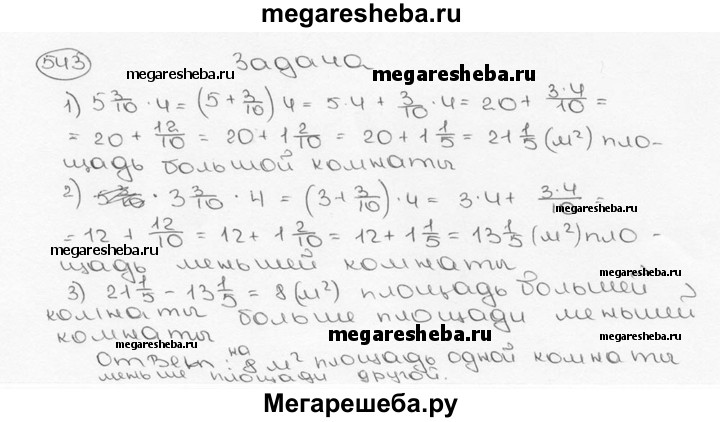 megaresheba.ru
543 Задача
megaresheba.ru megaresheba.ru
1) 5 3/10 · 4 = (5 + 3/10) 4 = 5·4 + 3/10 · 4 = 20 + 3·4/10 =
= 20 + 12/10 = 20 + 1 2/10 = 20 + 1 1/5 = 21 1/5 (м²) пло-
щадь большой комнаты
2) 3 3/10 · 4 = (3 + 3/10) · 4 = 3·4 + 3·4/10 =
megaresheba.ru
= 12 + 12/10 = 12 + 1 2/10 = 12 + 1 1/5 = 13 1/5 (м²) пло-
megaresheba.ru
щадь меньшей комнаты
megaresheba.ru
3) 21 1/5 - 13 1/5 = 8 (м²) площадь большей
комнаты больше площади меньшей
комнаты
megaresheba.ru
Ответ: на 8 м² площадь одной комнаты
меньше площади другой.
Мегарешеба.ру